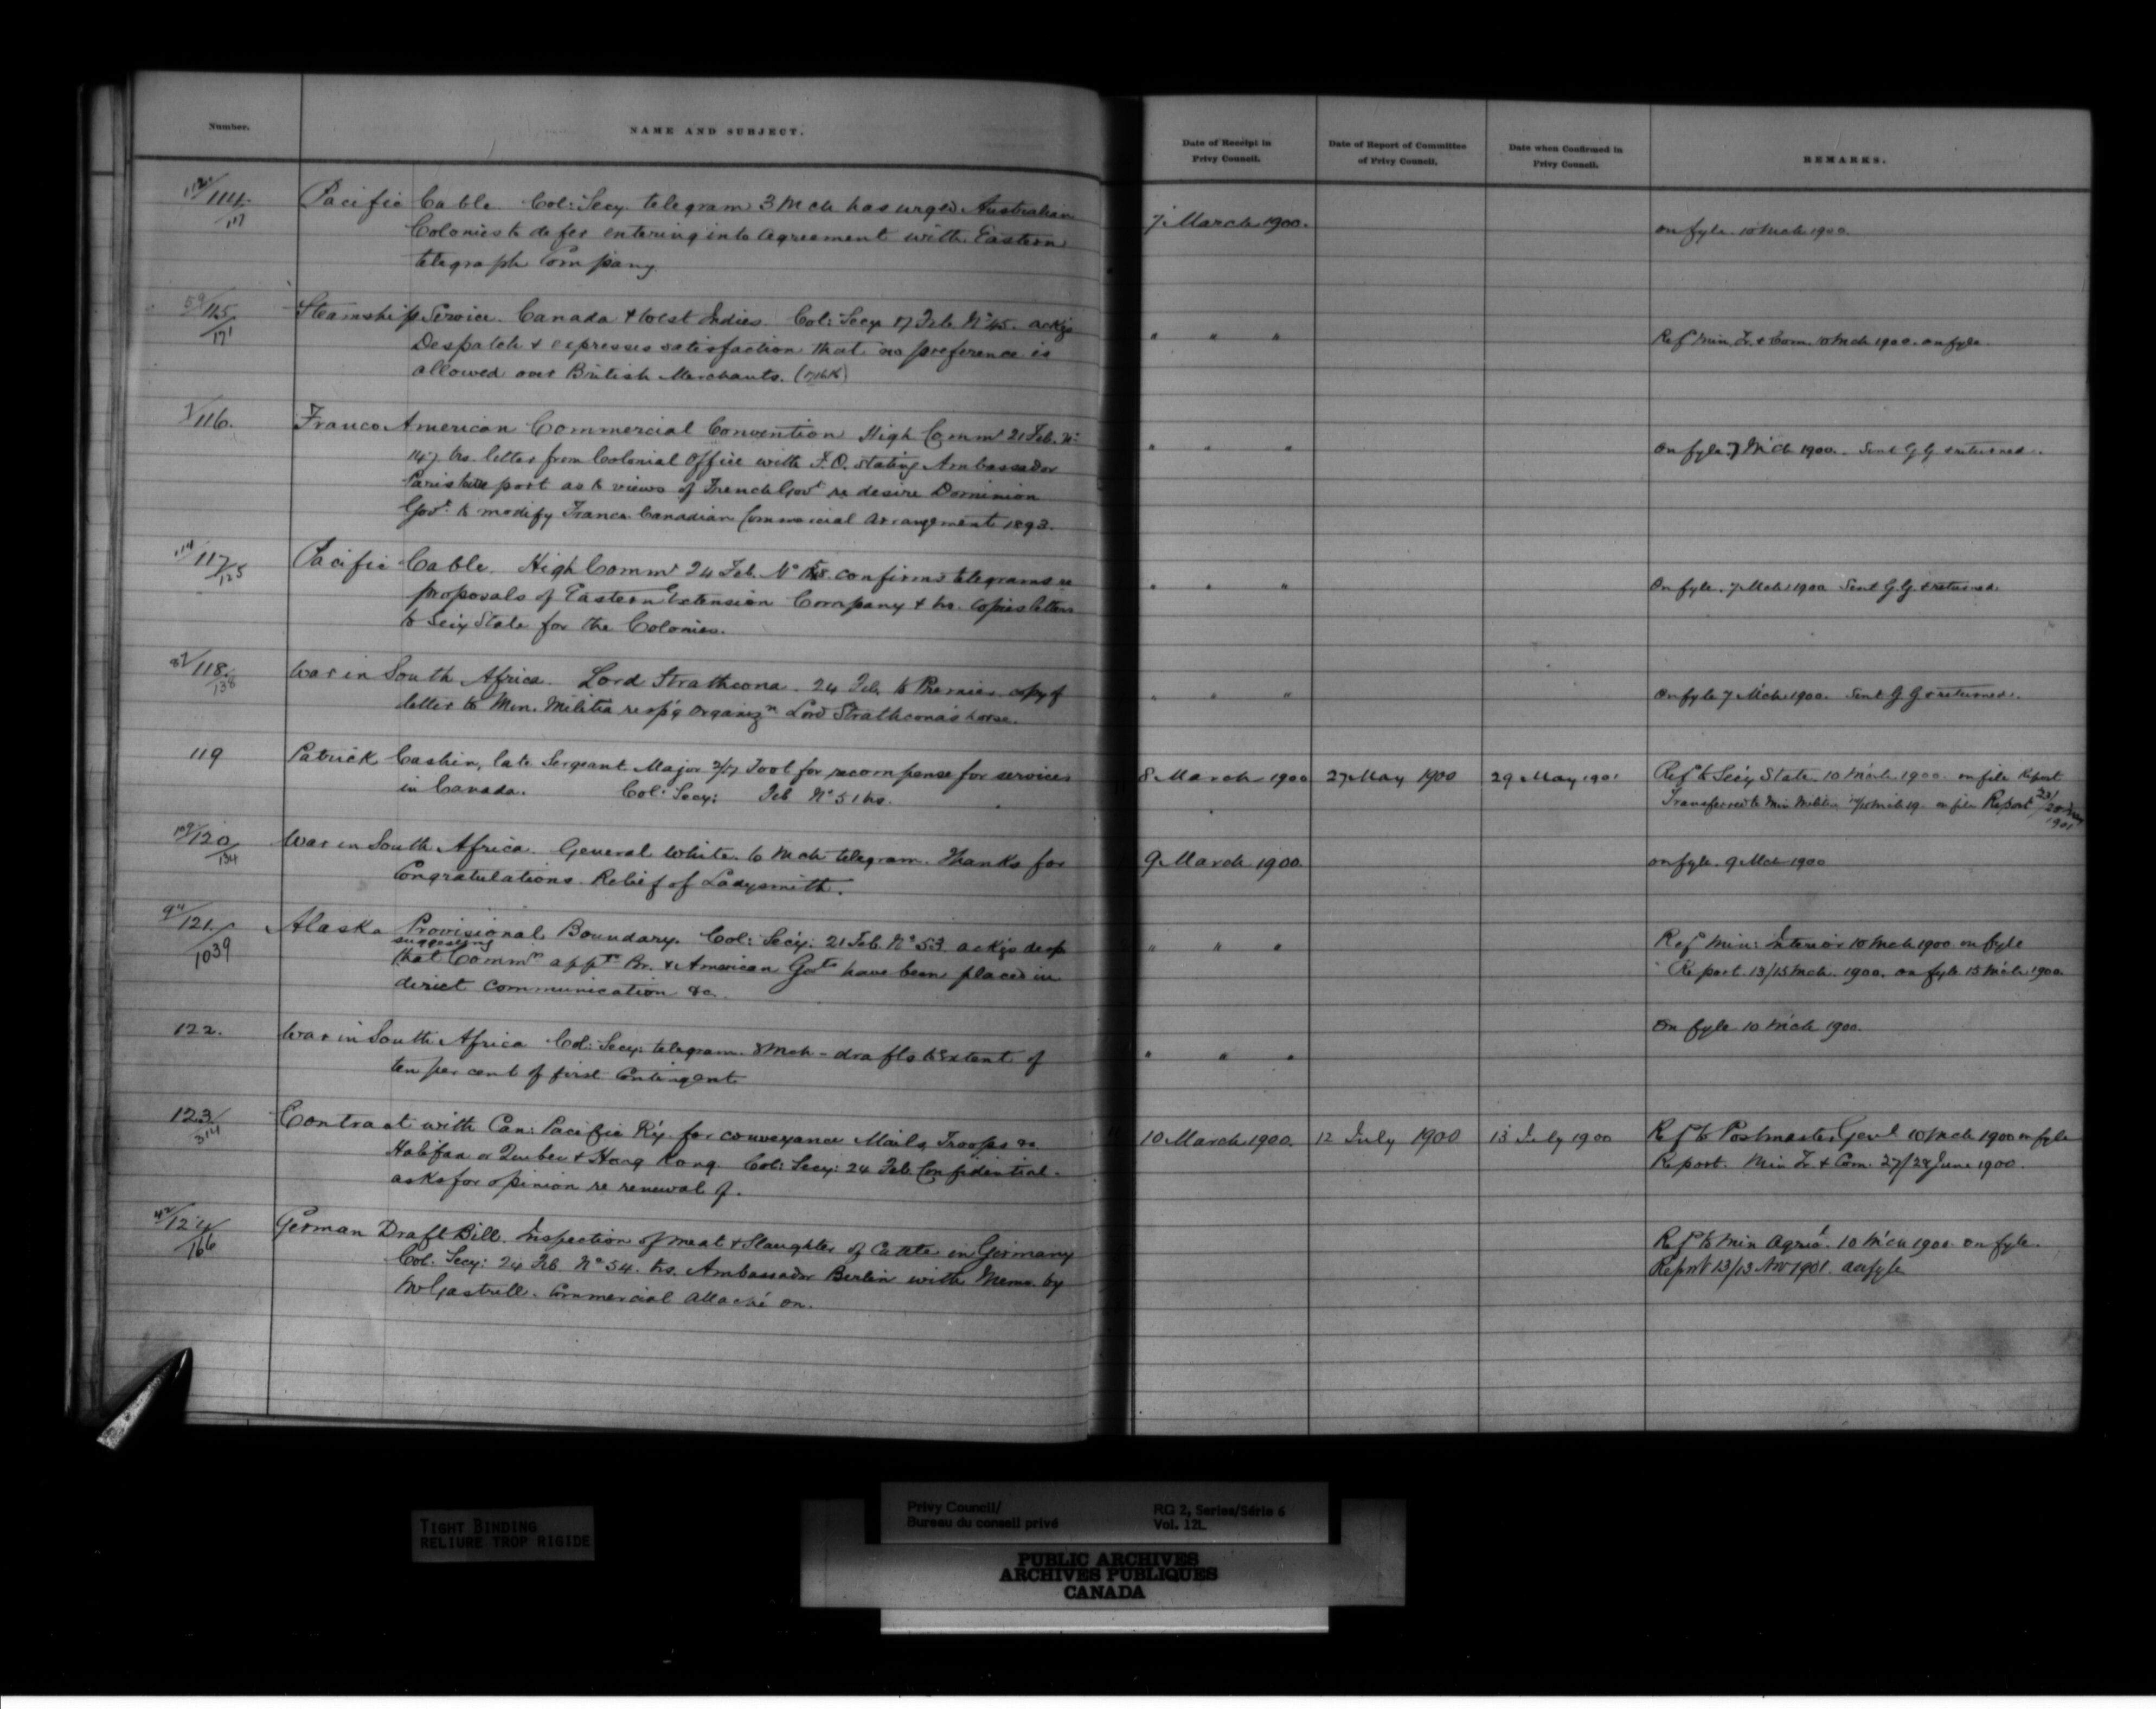 Number.
NAME AND SUBJECT.
Date of Receipt in
Privy Council.
Date of Report of Committee
of Privy Council.
Date when Confirmed in
Privy Council.
REMARKS.
112/114/117
Pacific Cable. Col: Secy. telegram 3 Mch has urged Australian
Colonies to defer entering into agreement with Eastern
telegraph Company.
7 March 1900.
on fyle. 10 Mch 1900.
59/115/171
Steamship Service. Canada & West Indies. Col: Secy 17 Feb. No 45. ackgs
Despatch & expresses satisfaction that no preference is
allowed over British Merchants.
" " "
Ref Min. Tr. & Com. 10 Mch 1900. on fyle.
1/116.
Franco American Commercial Convention High Commr 21 Feb. No
147 trs. letter from Colonial Office with F.O. stating Ambassador
Paris report as to views of French Govt re desire Dominion
Govt to modify Franco Canadian Commercial Arrangement 1893.
" " "
on fyle 7 Mch 1900. Sent G G & returned.
114/117/125
Pacific Cable. High Commr 24 Feb. No confirms telegrams re
proposals of Eastern Extension Company & trs. copies letters
to Secy State for the Colonies.
" " "
On fyle. 7 Mch 1900 Sent G.G. & returned.
87/118./138
War in South Africa. Lord Strathcona. 24 Feb. to Premier copy of
letter to Min. Militia resp'g organizn Lord Strathcona's horse.
" " "
On fyle 7 Mch 1900. Sent G G & returned.
119
Patrick Cashin, late Sergeant Major 2/17 Foot for recompense for services
in Canada. Col: Secy: Feb No 51 trs.
8 March 1900
27 May 1900
29 May 1901
Ref to Secy State. 10 Mch 1900. on file Report
Transferred to Min Militia on file Report 23/28 May
1901
109/120/134
War in South Africa. General White. 6 Mch telegram. Thanks for
Congratulations. Relief of Ladysmith.
9 March 1900.
on fyle. 9 Mch 1900
94/121./1039
Alaska Provisional Boundary. Col: Secy: 21 Feb. No 53. ackgs desp
suggesting
that Commrs appd Br. & American Govts have been placed in
direct communication &c.
" " "
Ref Min: Interior 10 Mch 1900 on fyle
Report 13/15 Mch. 1900. on fyle 15 Mch 1900.
122.
War in South Africa Col: Secy: telegram. 8 Mch - drafts to extent of
ten per cent of first Contingent
" " "
On fyle 10 Mch 1900.
123/314
Contract with Can: Pacific Ry. for conveyance Mails, Troops &c
Halifax or Quebec & Hong Kong. Col: Secy: 24 Feb. Confidential.
asks for opinion re renewal of.
10 March 1900.
12 July 1900
13 July 1900
Ref to Postmaster Genl 10 Mch 1900 on fyle
Report. Min Tr. & Com. 27/28 June 1900.
42/124/166
German Draft Bill. Inspection of meat & Slaughter of Cattle in Germany
Col. Secy: 24 Feb No 54. trs. Ambassador Berlin with Memo. by
Mr Gastrell. Commercial Attaché on.
Ref to Min Agric. 10 Mch 1900. on fyle.
Report 13/13 Nov 1901. on fyle
TIGHT BINDING
RELIURE TROP RIGIDE
Privy Council/
Bureau du conseil privé
RG 2, Series/Série 6
Vol. 12L
PUBLIC ARCHIVES
ARCHIVES PUBLIQUES
CANADA